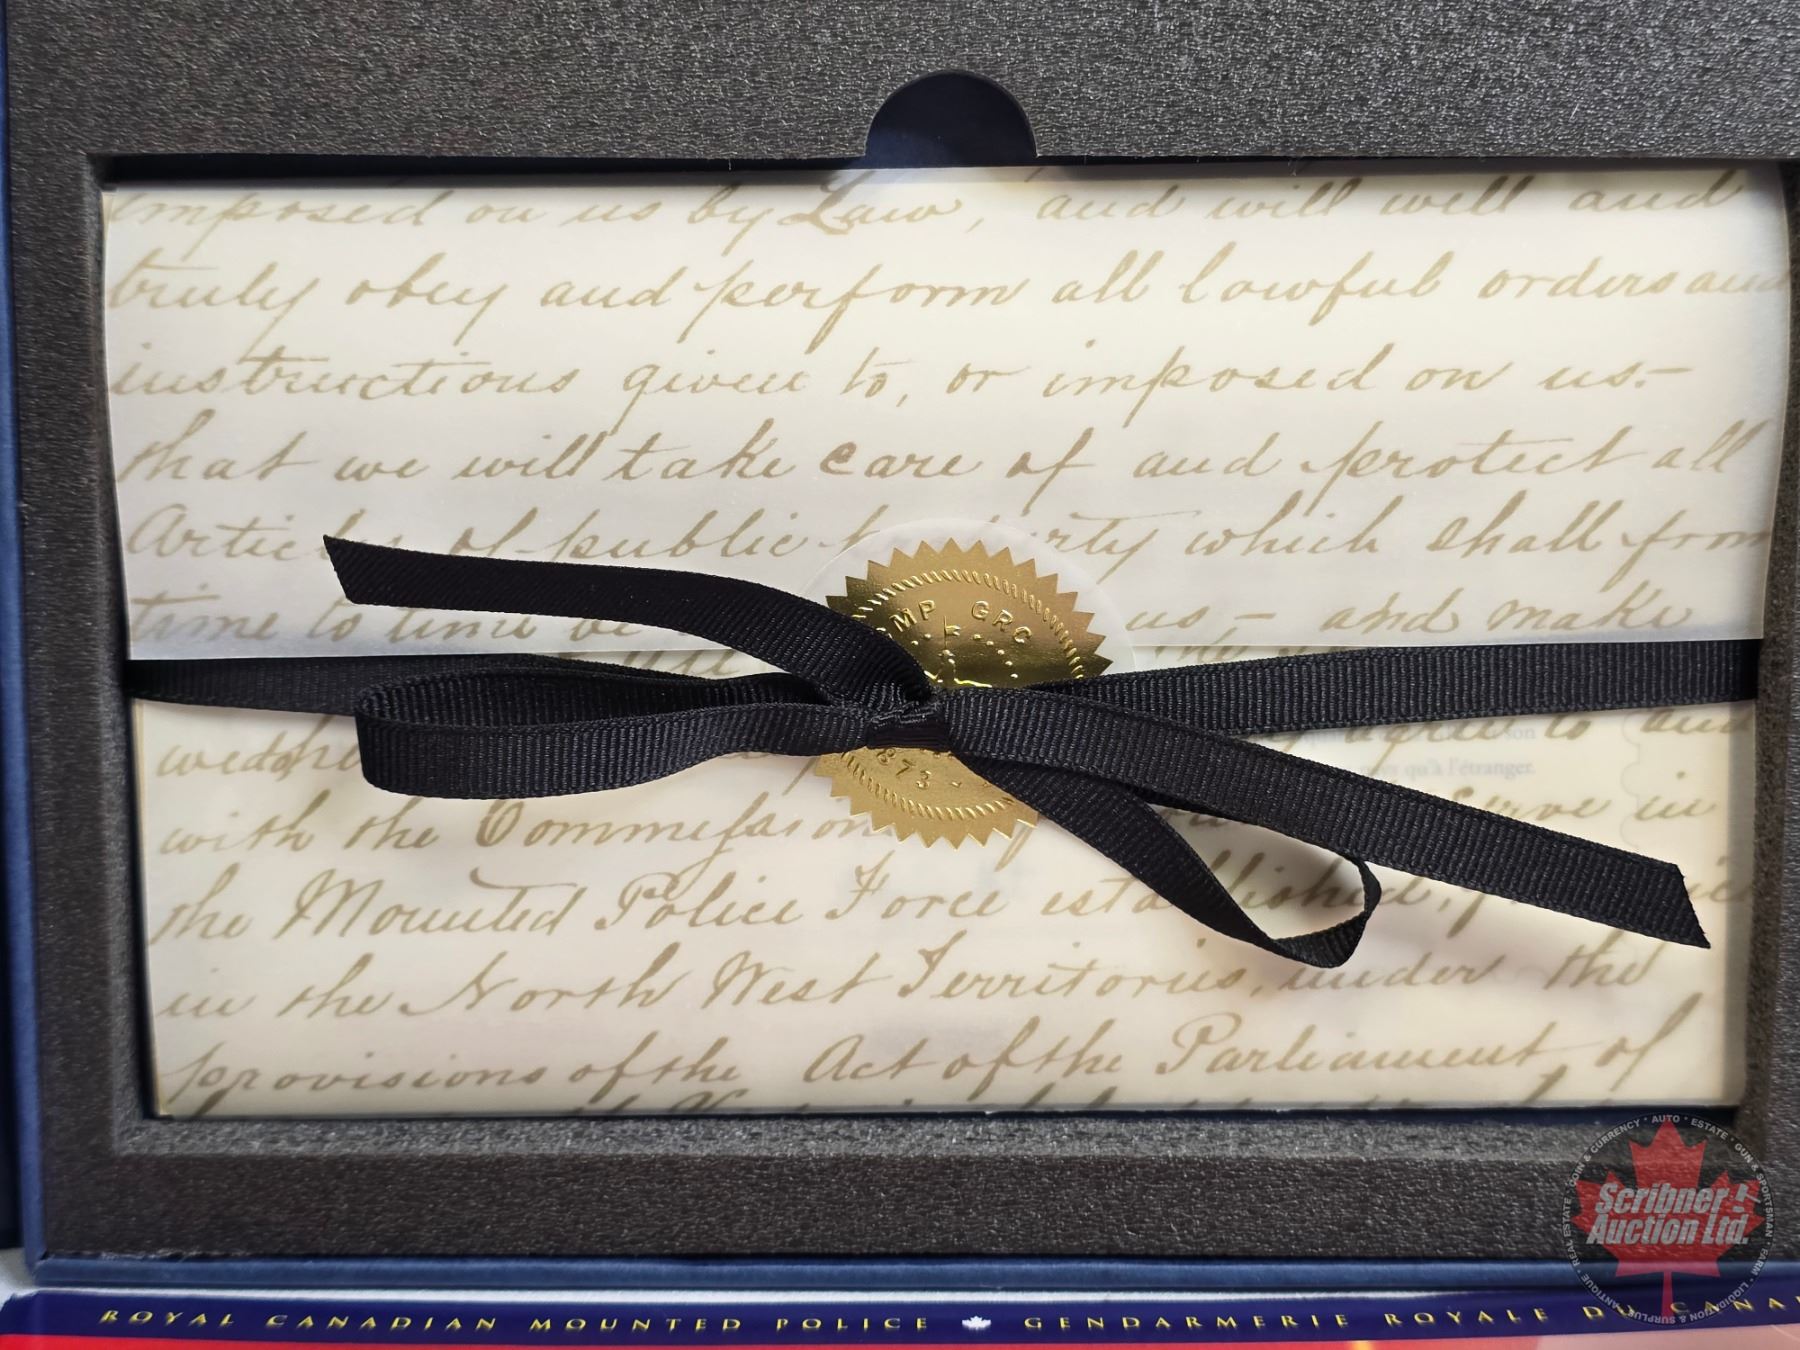 imposed on us by Law, and will well and
truly obey and perform all lawful orders and
instructions given to, or imposed on us.-
that we will take care of and protect all
Articles of public property which shall from
time to time be us, - and make
MP GRC
873 -
agree to and
son
qu'à l'étranger.
with the Commission serve in
the Mounted Police Force established,
in the North West Territories, under the
provisions of the Act of the Parliament of
ROYAL CANADIAN MOUNTED POLICE GENDARMERIE ROYALE DU CANA
Scribner
Auction Ltd.
COIN & CURRENCY • AUTO • ESTATE • GUN & SPORTSMAN • FARM • LIQUIDATION & SURPLUS • ANTIQUE • REAL ESTATE